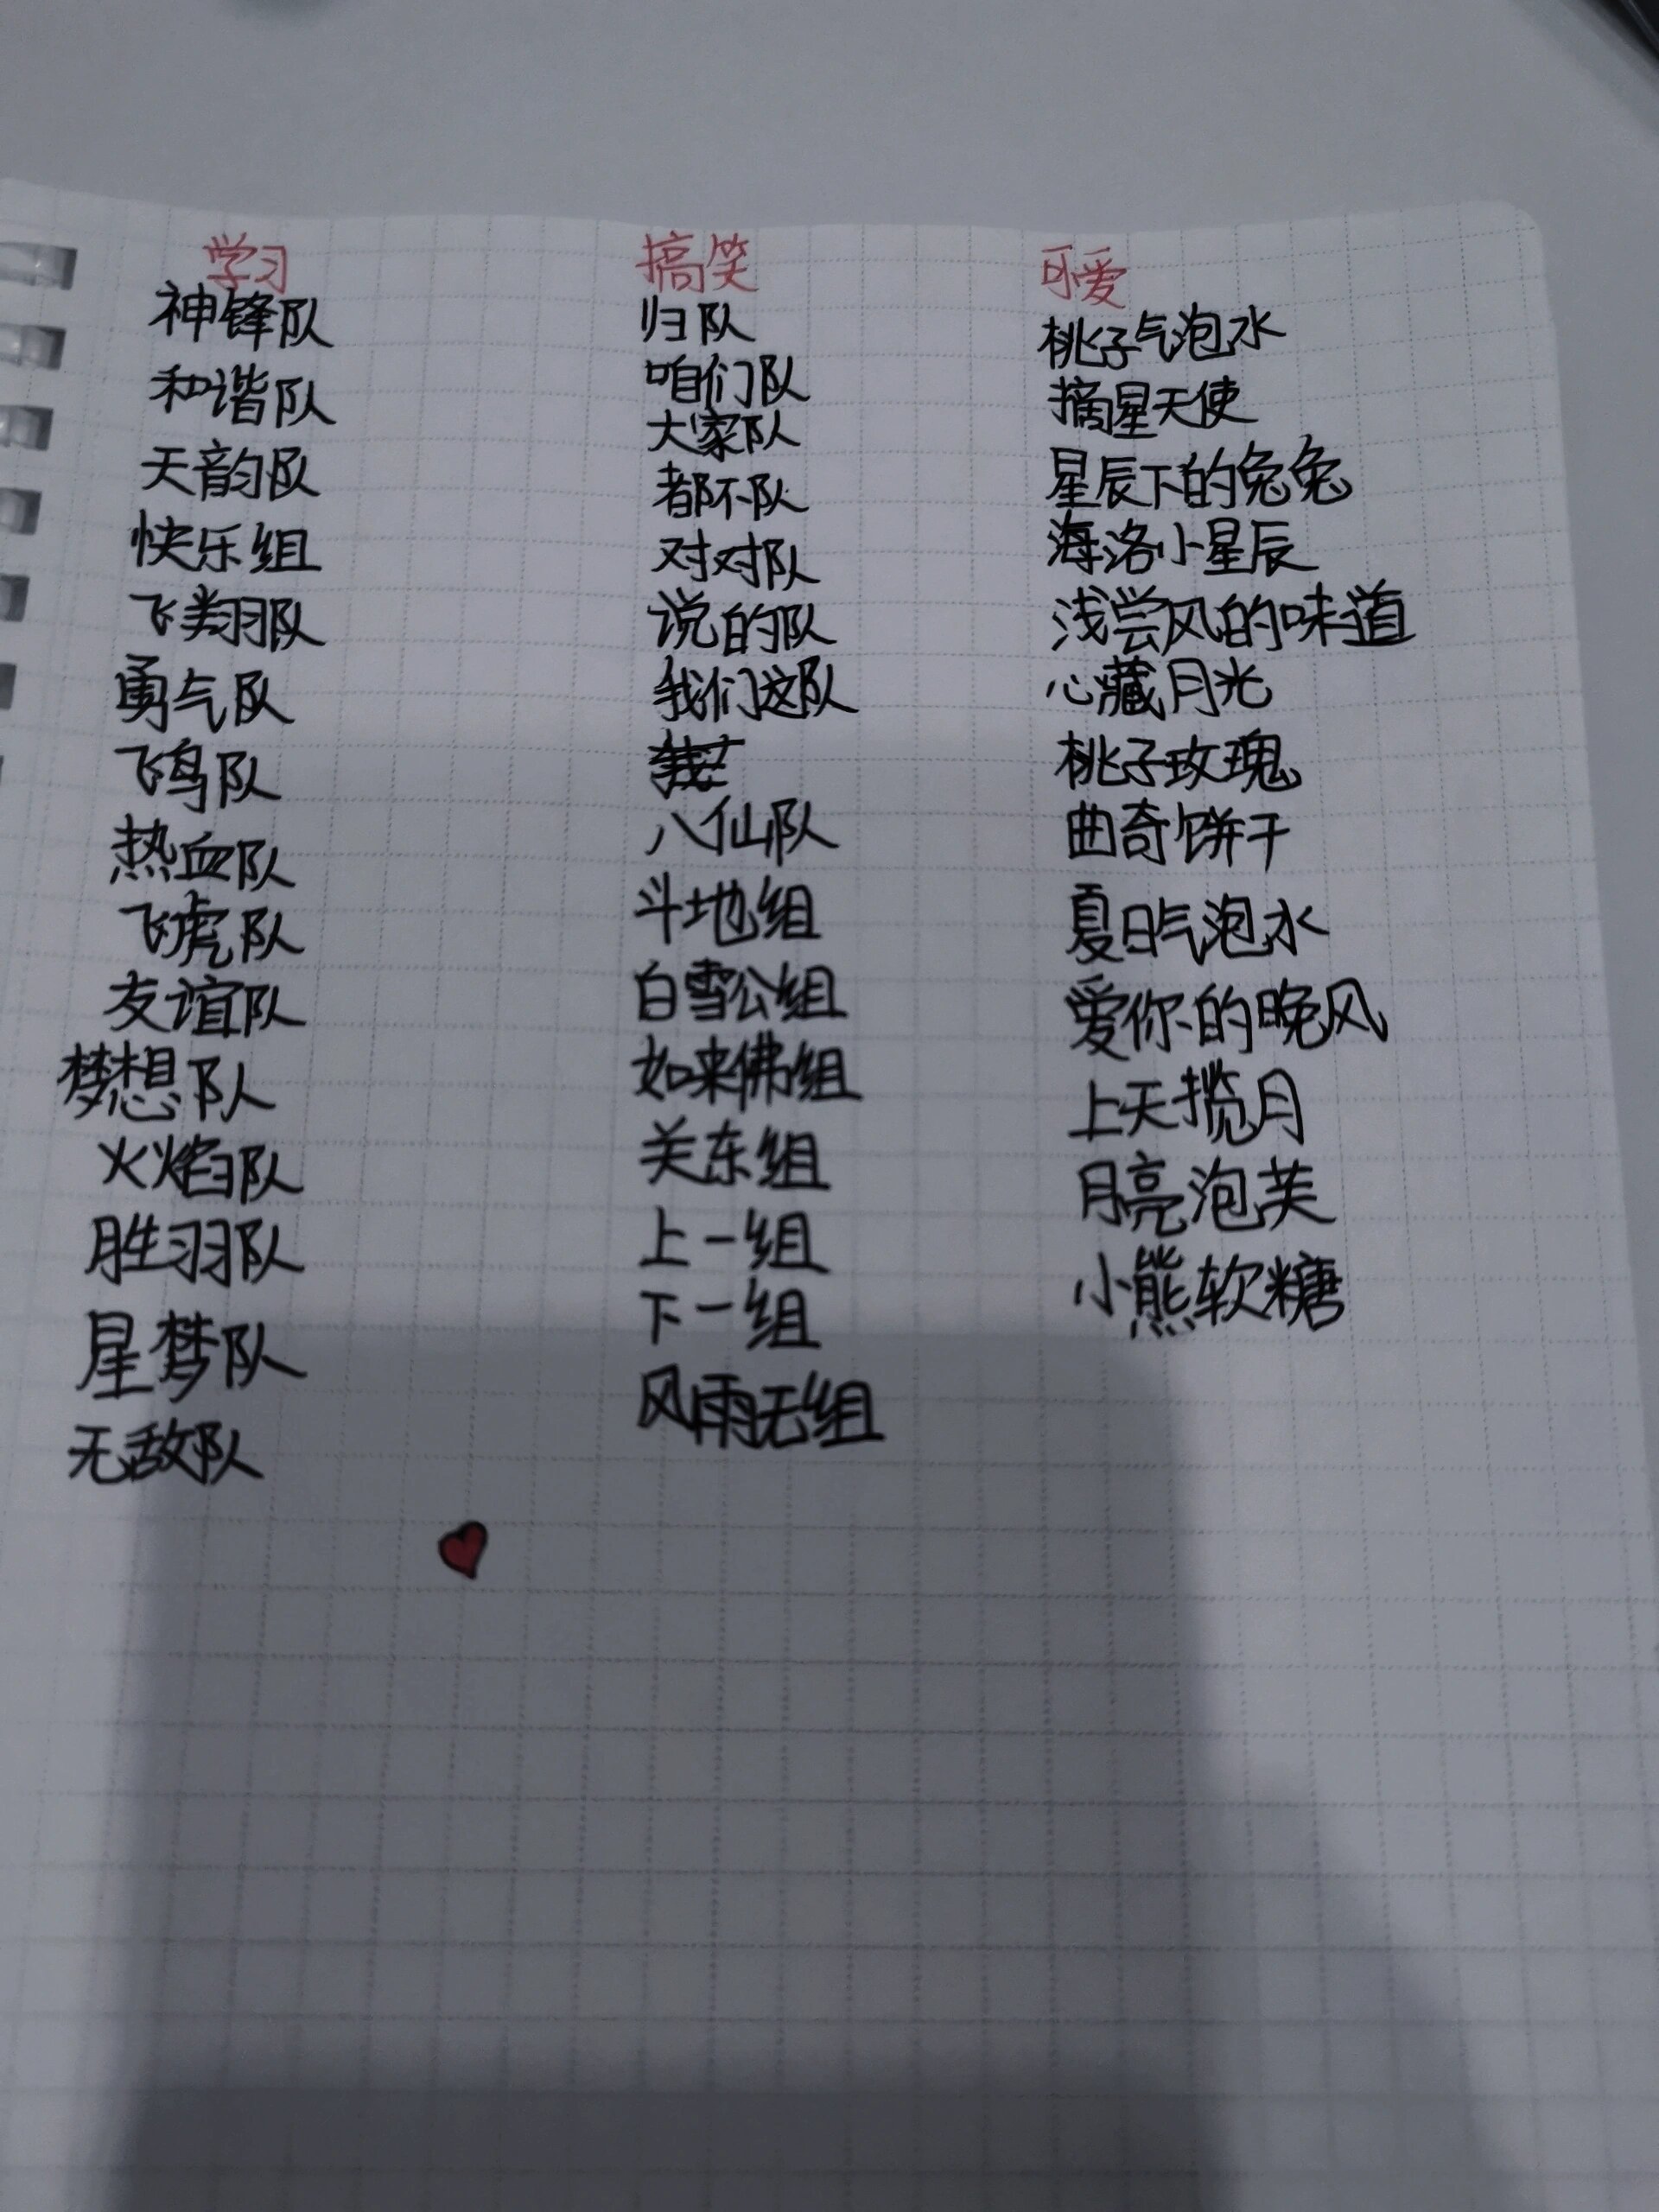 学习
神锋队
和谐队
天韵队
快乐组
飞翔队
勇气队
飞鸟队
热血队
飞虎队
友谊队
梦想队
火焰队
胜羽队
星梦队
无敌队
搞笑
归队
咱们队
大家队
都不队
对对队
说的队
我们这队
八仙队
斗地组
白雪公组
如来佛组
关东组
上一组
下一组
风雨无组
可爱
桃子气泡水
摘星天使
星辰下的兔兔
海洛小星辰
浅尝风的味道
心藏月光
桃子玫瑰
曲奇饼干
夏日气泡水
爱你的晚风
上天揽月
月亮泡芙
小熊软糖